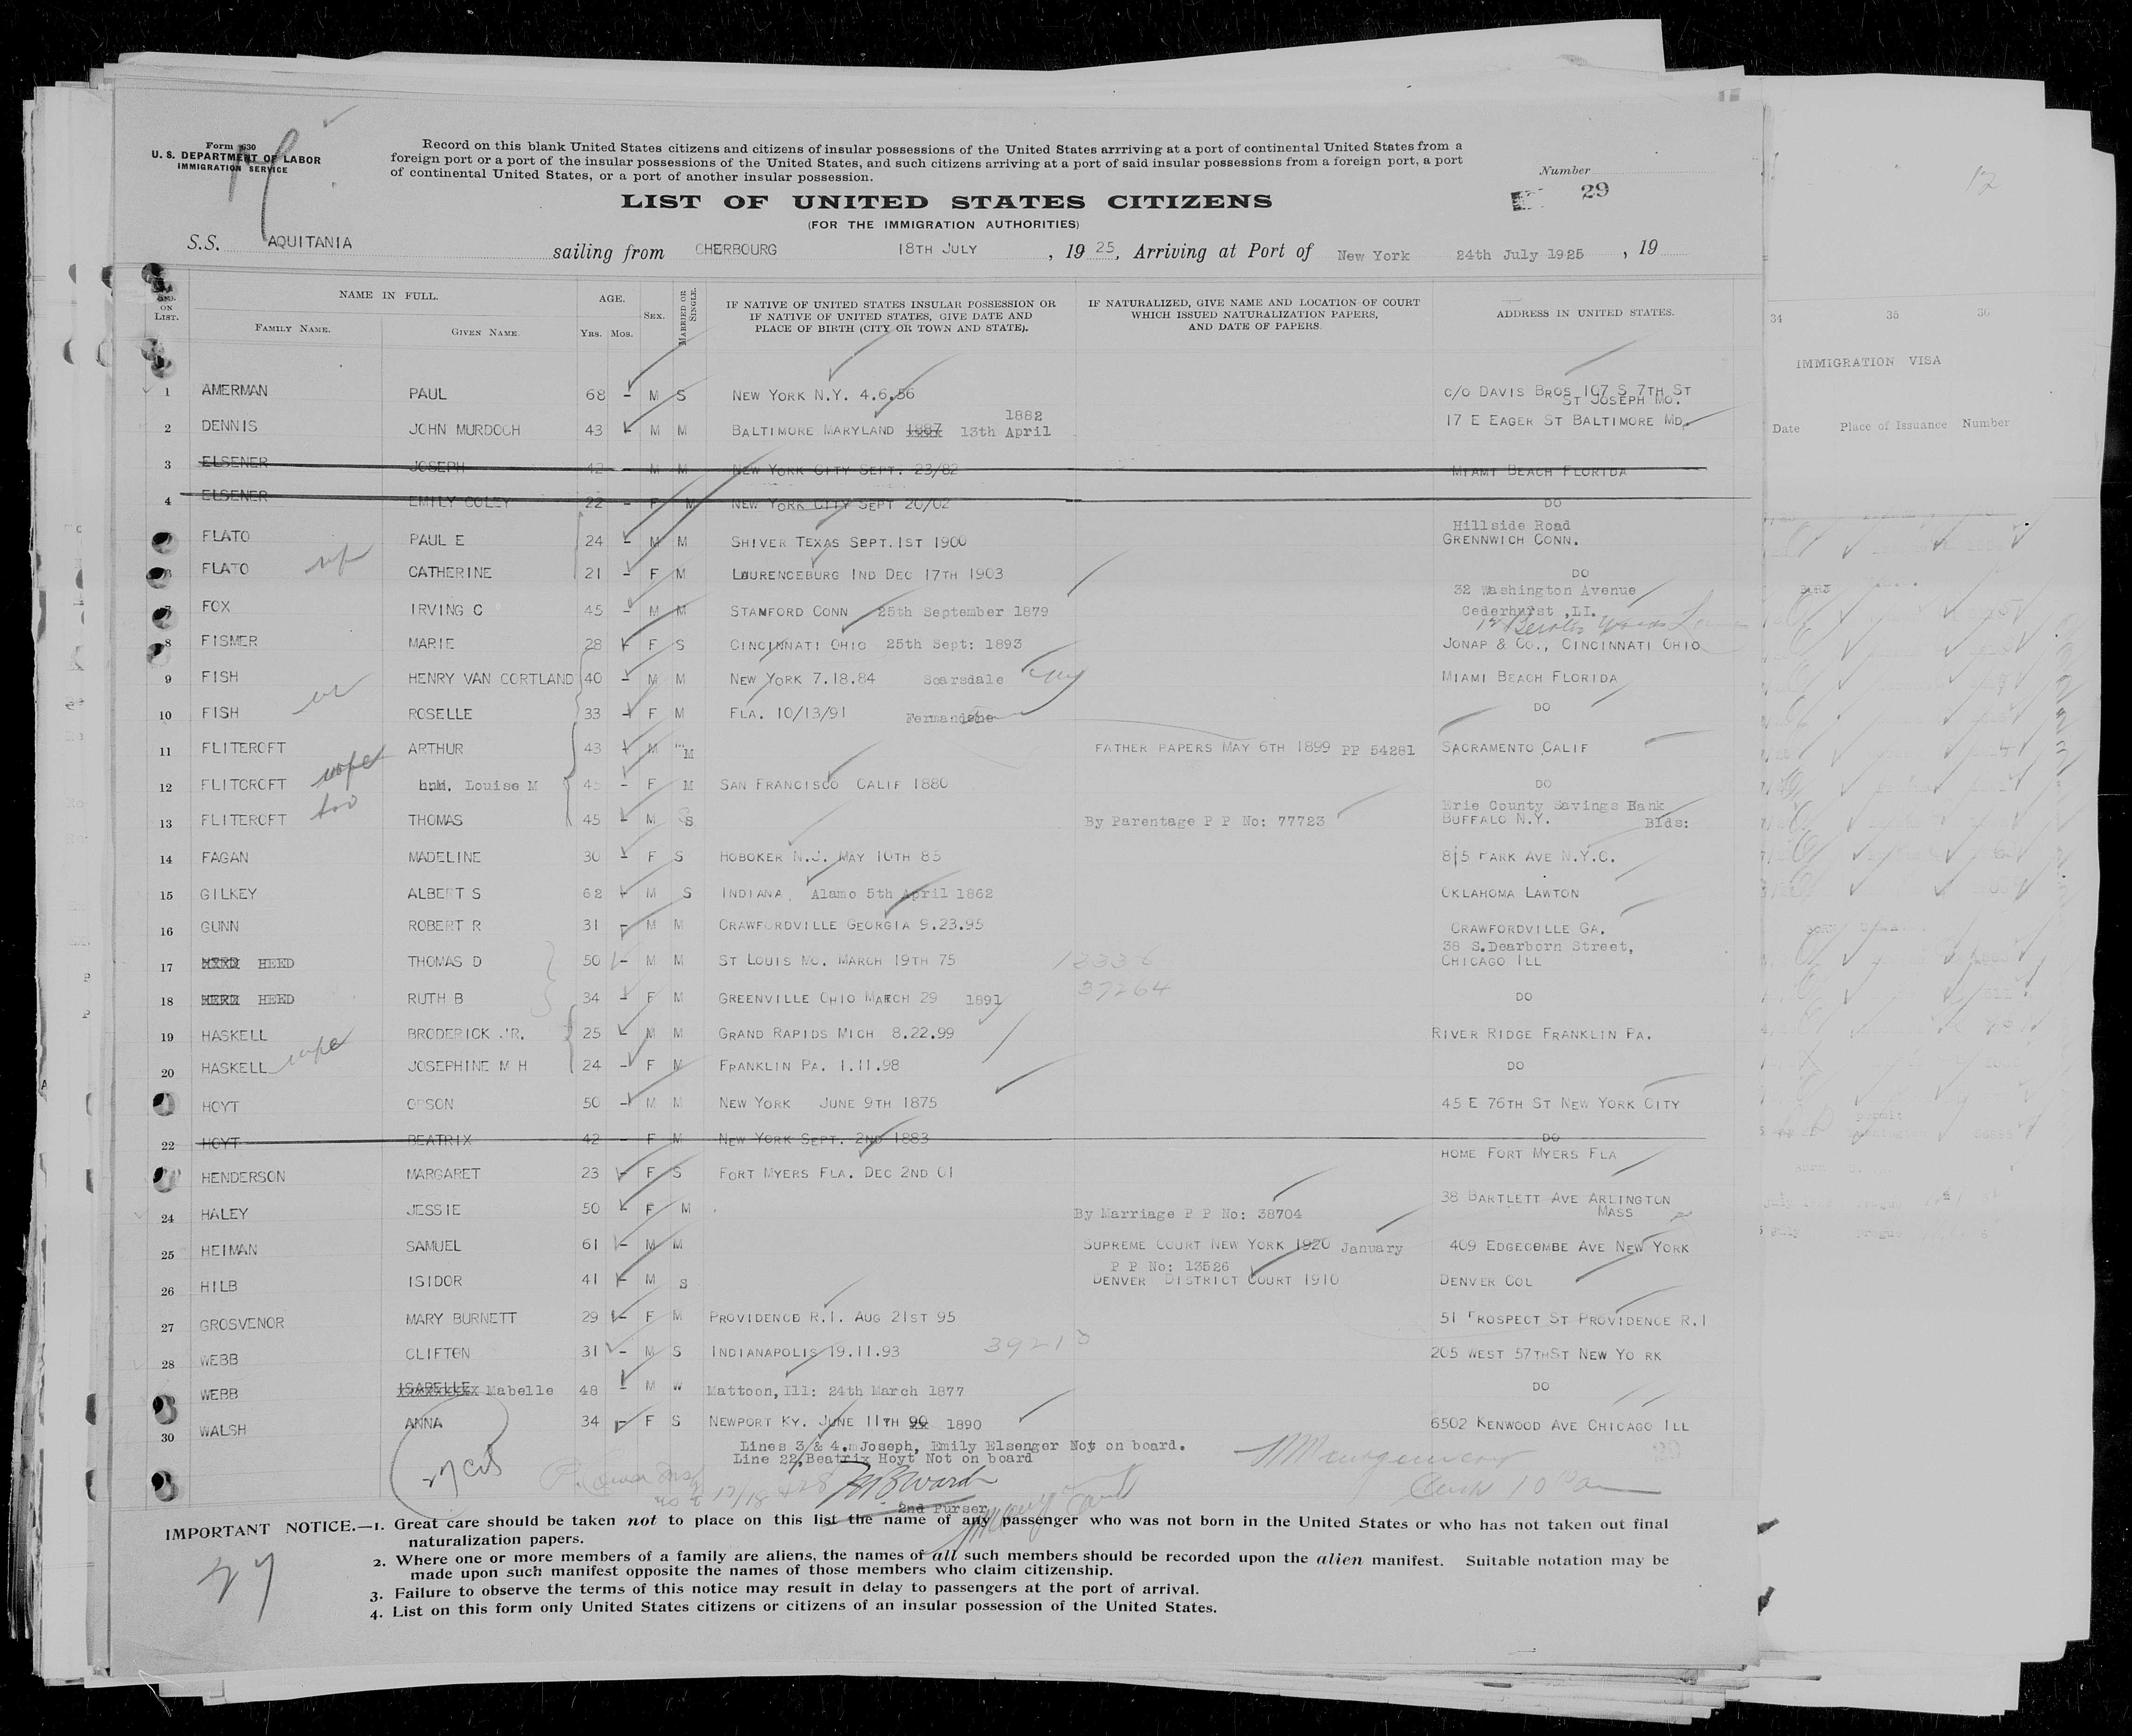 Form 630
U. S. DEPARTMENT OF LABOR
IMMIGRATION SERVICE
Record on this blank United States citizens and citizens of insular possessions of the United States arrriving at a port of continental United States from a
foreign port or a port of the insular possessions of the United States, and such citizens arriving at a port of said insular possessions from a foreign port, a port
of continental United States, or a port of another insular possession.
Number
29
LIST OF UNITED STATES CITIZENS
(FOR THE IMMIGRATION AUTHORITIES)
S.S. AQUITANIA sailing from CHERBOURG 18TH JULY , 19 25, Arriving at Port of New York 24th July 1925 , 19
ON LIST. NAME IN FULL. AGE. SEX. MARRIED OR SINGLE.
FAMILY NAME. GIVEN NAME. YRS. MOS.
IF NATIVE OF UNITED STATES INSULAR POSSESSION OR
IF NATIVE OF UNITED STATES, GIVE DATE AND
PLACE OF BIRTH (CITY OR TOWN AND STATE).
IF NATURALIZED, GIVE NAME AND LOCATION OF COURT
WHICH ISSUED NATURALIZATION PAPERS,
AND DATE OF PAPERS.
ADDRESS IN UNITED STATES.
1 AMERMAN PAUL 68 - M S NEW YORK N.Y. 4.6.56 C/O DAVIS BROS 107 S 7TH ST
ST JOSEPH MO.
1882
2 DENNIS JOHN MURDOCH 43 - M M BALTIMORE MARYLAND 1887 13th April 17 E EAGER ST BALTIMORE MD.
3 ELSENER JOSEPH 42 - M M NEW YORK CITY SEPT. 23/82 MIAMI BEACH FLORIDA
4 ELSENER EMILY COLEY 22 - F M NEW YORK CITY SEPT 20/02 DO
Hillside Road
FLATO PAUL E 24 - M M SHIVER TEXAS SEPT.1ST 1900 GRENNWICH CONN.
FLATO CATHERINE 21 - F M LAURENCEBURG IND DEC 17TH 1903 DO
32 Washington Avenue
7 FOX IRVING C 45 - M M STAMFORD CONN 25th September 1879 Cederhurst ,LI.
8 FISMER MARIE 28 - F S CINCINNATI OHIO 25th Sept: 1893 JONAP & CO., CINCINNATI OHIO
9 FISH HENRY VAN CORTLAND 40 - M M NEW YORK 7.18.84 Scarsdale MIAMI BEACH FLORIDA
10 FISH ROSELLE 33 - F M FLA. 10/13/91 DO
11 FLITERCFT ARTHUR 43 - M M FATHER PAPERS MAY 6TH 1899 PP 54281 SACRAMENTO CALIF
12 FLITCROFT Louise M 45 - F M SAN FRANCISCO CALIF 1880 DO
Erie County Savings Bank
13 FLITERCFT THOMAS 45 - M S By Parentage P P No: 77723 BUFFALO N.Y. Blds:
14 FAGAN MADELINE 30 - F S HOBOKER N.J. MAY 10TH 85 815 PARK AVE N.Y.C.
15 GILKEY ALBERT S 62 - M S INDIANA. Alamo 5th April 1862 OKLAHOMA LAWTON
16 GUNN ROBERT R 31 - M M CRAWFORDVILLE GEORGIA 9.23.95 CRAWFORDVILLE GA.
38 S.Dearborn Street,
17 HEED THOMAS D 50 - M M ST LOUIS MO. MARCH 19TH 75 CHICAGO ILL
18 HEED RUTH B 34 - F M GREENVILLE OHIO MARCH 29 1891 37264 DO
19 HASKELL BRODERICK JR. 25 - M M GRAND RAPIDS MICH 8.22.99 RIVER RIDGE FRANKLIN PA.
20 HASKELL JOSEPHINE M H 24 - F M FRANKLIN PA. 1.11.98 DO
HOYT ORSON 50 - M M NEW YORK JUNE 9TH 1875 45 E 76TH ST NEW YORK CITY
22 HOYT BEATRIX 42 - F M NEW YORK SEPT. 2ND 1883 DO
HENDERSON MARGARET 23 - F S FORT MYERS FLA. DEC 2ND 01 HOME FORT MYERS FLA
24 HALEY JESSIE 50 - F M By Marriage P P No: 38704 38 BARTLETT AVE ARLINGTON
MASS
25 HEIMAN SAMUEL 61 - M M SUPREME COURT NEW YORK 1920 January 409 EDGECOMBE AVE NEW YORK
P P No: 13526
26 HILB ISIDOR 41 - M S DENVER DISTRICT COURT 1910 DENVER COL
27 GROSVENOR MARY BURNETT 29 - F M PROVIDENCE R.I. AUG 21ST 95 51 PROSPECT ST PROVIDENCE R.I
28 WEBB CLIFTON 31 - M S INDIANAPOLIS 19.11.93 39213 205 WEST 57THST NEW YO RK
WEBB ISABELLE Mabelle 48 - M W Mattoon,Ill: 24th March 1877 DO
30 WALSH ANNA 34 - F S NEWPORT KY. JUNE 11TH 90 1890 6502 KENWOOD AVE CHICAGO ILL
Lines 3/& 4.m Joseph, Emily Elsenger Not on board.
Line 22 Beatrix Hoyt Not on board
2nd Purser
IMPORTANT NOTICE.—1. Great care should be taken not to place on this list the name of any passenger who was not born in the United States or who has not taken out final
naturalization papers.
2. Where one or more members of a family are aliens, the names of all such members should be recorded upon the alien manifest. Suitable notation may be
made upon such manifest opposite the names of those members who claim citizenship.
3. Failure to observe the terms of this notice may result in delay to passengers at the port of arrival.
4. List on this form only United States citizens or citizens of an insular possession of the United States.
27
12
34 35 36
IMMIGRATION VISA
Date Place of Issuance Number